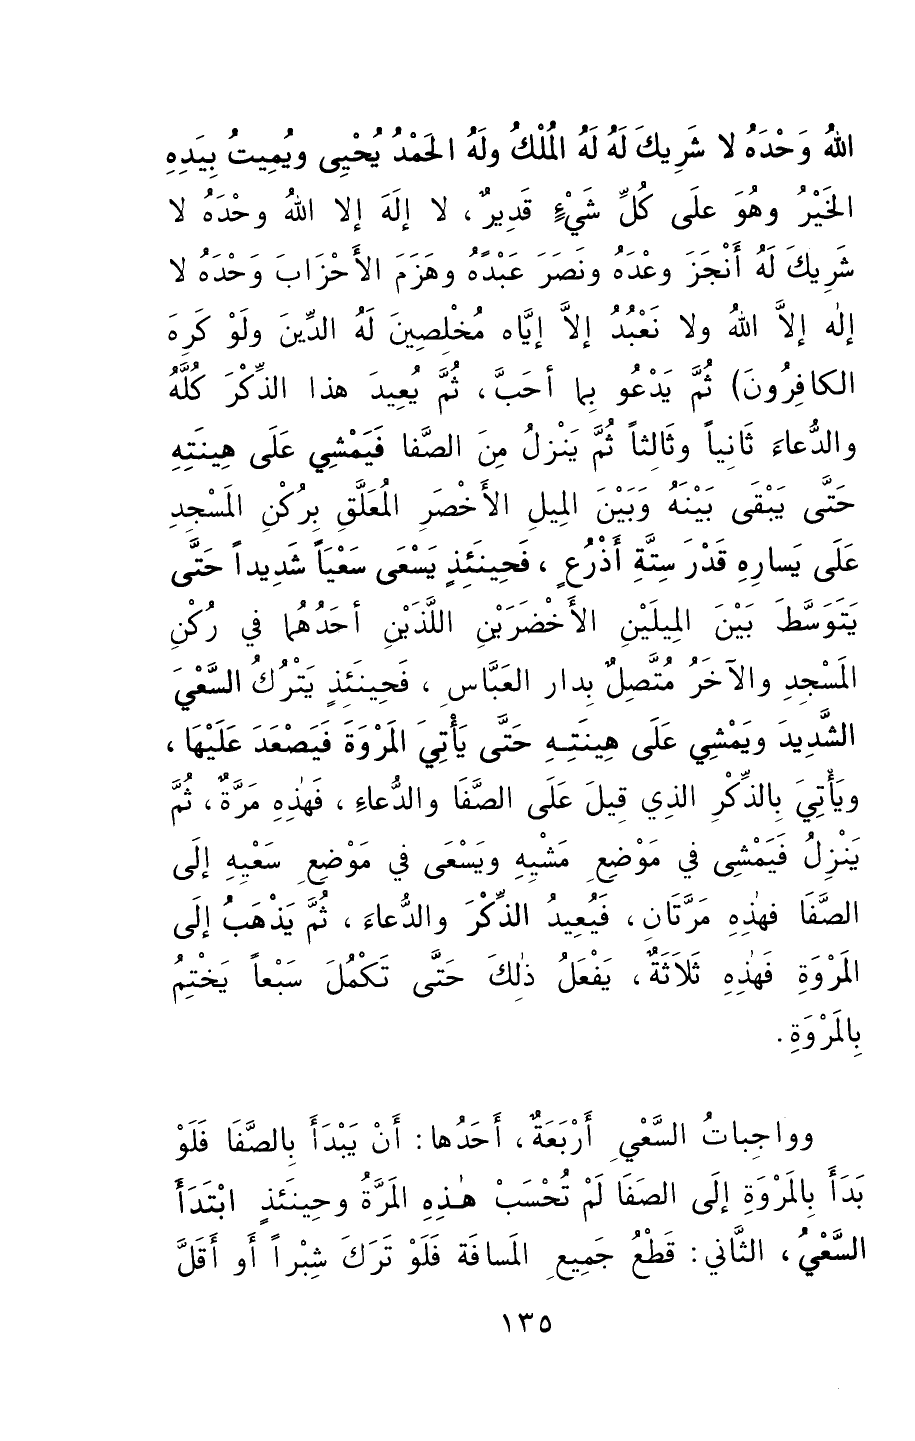 اللهُ وَحْدَهُ لا شَرِيكَ لَهُ لَهُ المُلْكُ ولَهُ الحَمْدُ يُحْيِى ويُمِيتُ بِيَدِهِ
الخَيْرُ وهُوَ علَى كُلِّ شَيْءٍ قَدِيرٌ، لا إلَهَ إلا اللهُ وحْدَهُ لا
شَرِيكَ لَهُ أَنْجَزَ وعْدَهُ ونَصَرَ عَبْدَهُ وهَزَمَ الأَحْزَابَ وَحْدَهُ لا
إلٰه إلاَّ اللهُ ولا نَعْبُدُ إلاَّ إيَّاه مُخْلِصِينَ لَهُ الدِّينَ ولَوْ كَرِهَ
الكافِرُونَ) ثُمَّ يَدْعُو بِما أحَبَّ، ثُمَّ يُعِيدَ هذا الذِّكْرَ كُلَّهُ
والدُّعاءَ ثَانِياً وثَالِثاً ثُمَّ يَنْزِلُ مِنَ الصَّفا فَيَمْشِي عَلَى هِينَتِهِ
حَتَّى يَبْقَى بَيْنَهُ وَبَيْنَ المِيلِ الأَخْضَرِ المُعَلَّقِ بِرُكْنِ المَسْجِدِ
عَلَى يَسارِهِ قَدْرَ سِتَّةِ أَذْرُعٍ، فَحِينَئِذٍ يَسْعَى سَعْيَاً شَدِيداً حَتَّى
يَتَوَسَّطَ بَيْنَ المِيلَيْنِ الأَخْضَرَيْنِ اللَّذَيْنِ أحَدُهُما في رُكْنِ
المَسْجِدِ والآخَرُ مُتَّصِلٌ بِدار العَبَّاسِ، فَحِينَئِذٍ يَتْرُكُ السَّعْيَ
الشَّدِيدَ ويَمْشِي عَلَى هِينَتِهِ حَتَّى يَأْتِيَ المَرْوَةَ فَيَصْعَدَ عَلَيْهَا،
ويَأْتِيَ بِالذِّكْرِ الذِي قِيلَ عَلَى الصَّفَا والدُّعاءِ، فَهٰذِهِ مَرَّةٌ، ثُمَّ
يَنْزِلُ فَيَمْشِى في مَوْضِعِ مَشْيِهِ ويَسْعَى في مَوْضِعِ سَعْيِهِ إلَى
الصَّفَا فهٰذِهِ مَرَّتَانِ، فَيُعِيدُ الذِّكْرَ والدُّعاءَ، ثُمَّ يَذْهَبُ إلَى
المَرْوَةِ فَهٰذِهِ ثَلاَثَةٌ، يَفْعَلُ ذٰلِكَ حَتَّى تَكْمُلَ سَبْعاً يَخْتِمُ
بِالمَرْوَةِ.
وواجِباتُ السَّعْيِ أَرْبَعَةٌ، أَحَدُها: أَنْ يَبْدَأَ بِالصَّفَا فَلَوْ
بَدَأَ بِالمَرْوَةِ إلَى الصَفَا لَمْ تُحْسَبْ هٰذِهِ المَرَّةُ وحِينَئذٍ ابْتَدَأَ
السَّعْيُ، الثَّاني: قَطْعُ جَمِيعِ المَسافَة فَلَوْ تَرَكَ شِبْراً أَو أَقَلَّ
١٣٥